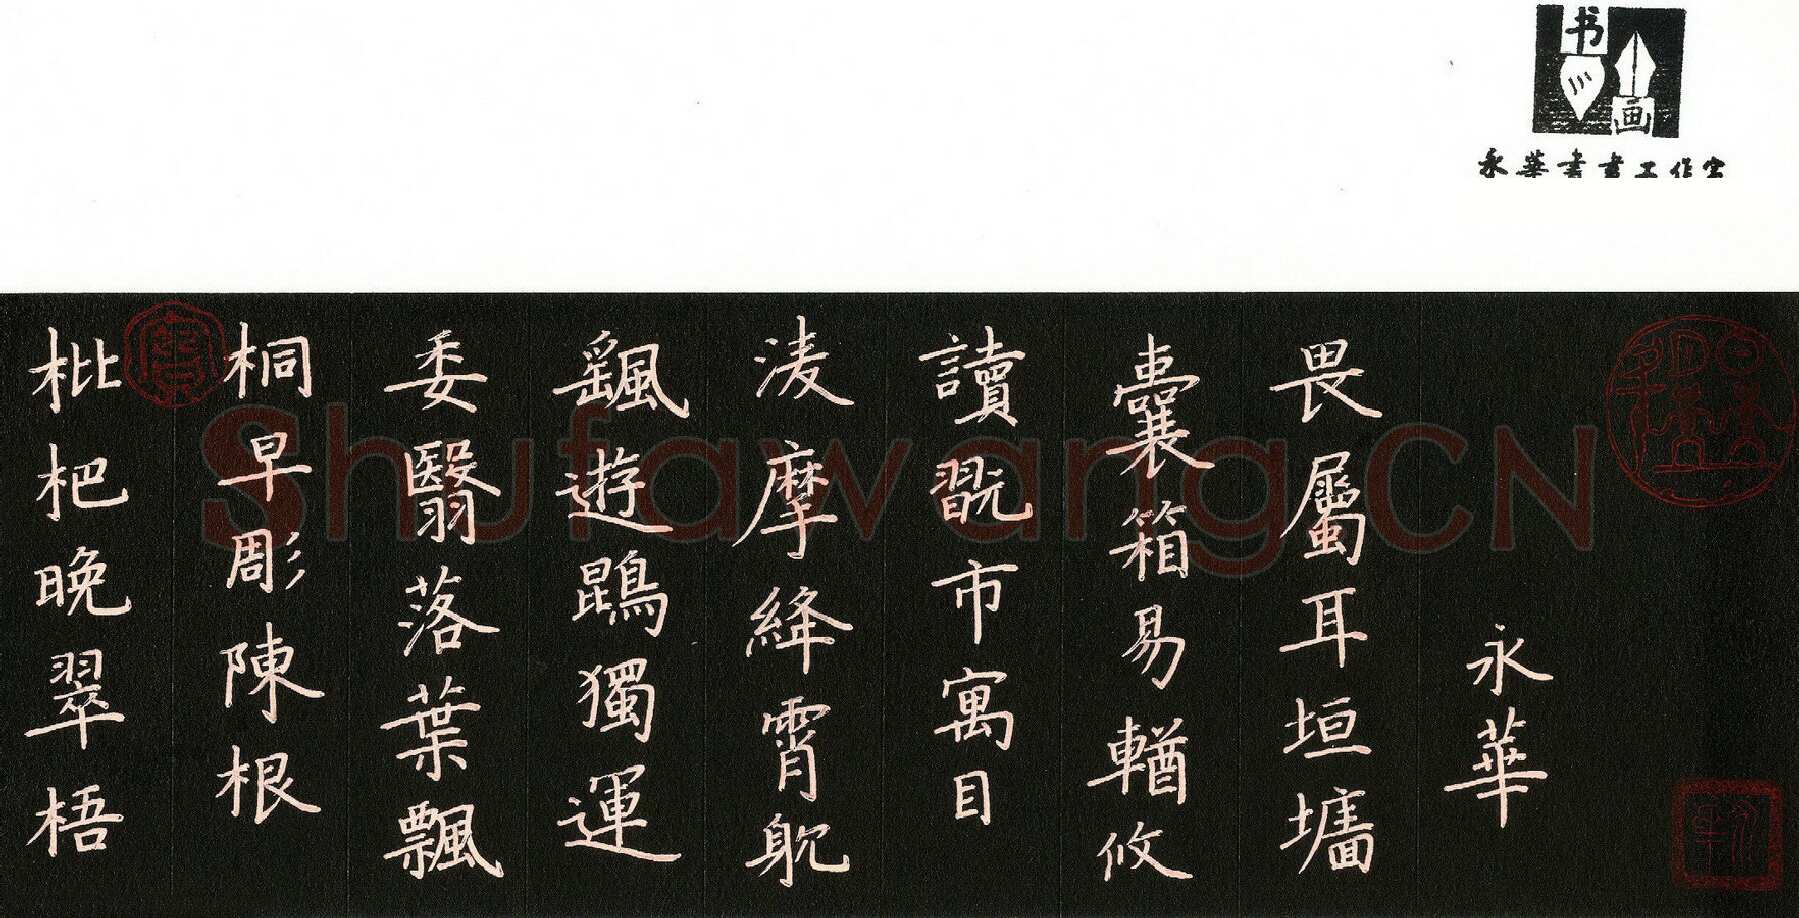 书
画
永華書畫工作室
枇杷晚翠梧
桐早彫陳根
委翳落葉飄
颻遊鵾獨運
淩摩絳霄躭
讀翫市寓目
囊箱易輶攸
畏屬耳垣墻
永華
Shufawang.CN